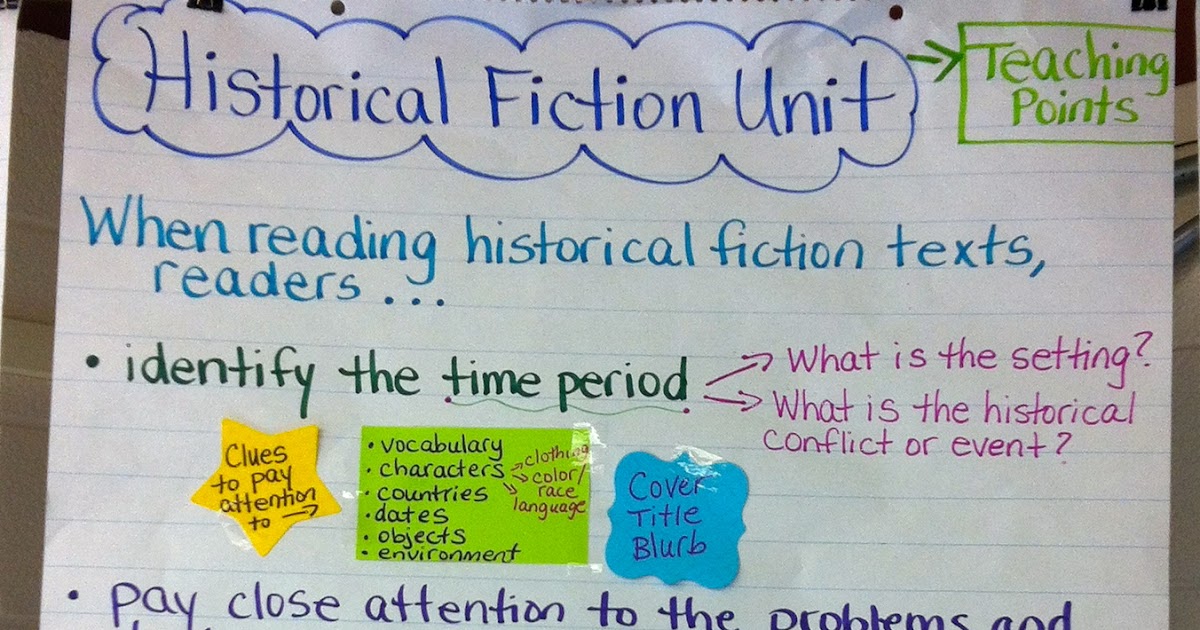 Historical Fiction Unit
Teaching
Points
When reading historical fiction texts,
readers ...
• identify the time period
What is the setting?
What is the historical
conflict or event?
Clues
to pay
attention
to
• vocabulary
• characters
clothing
color/
race
language
• countries
• dates
• objects
• environment
Cover
Title
Blurb
• pay close attention to the problems and